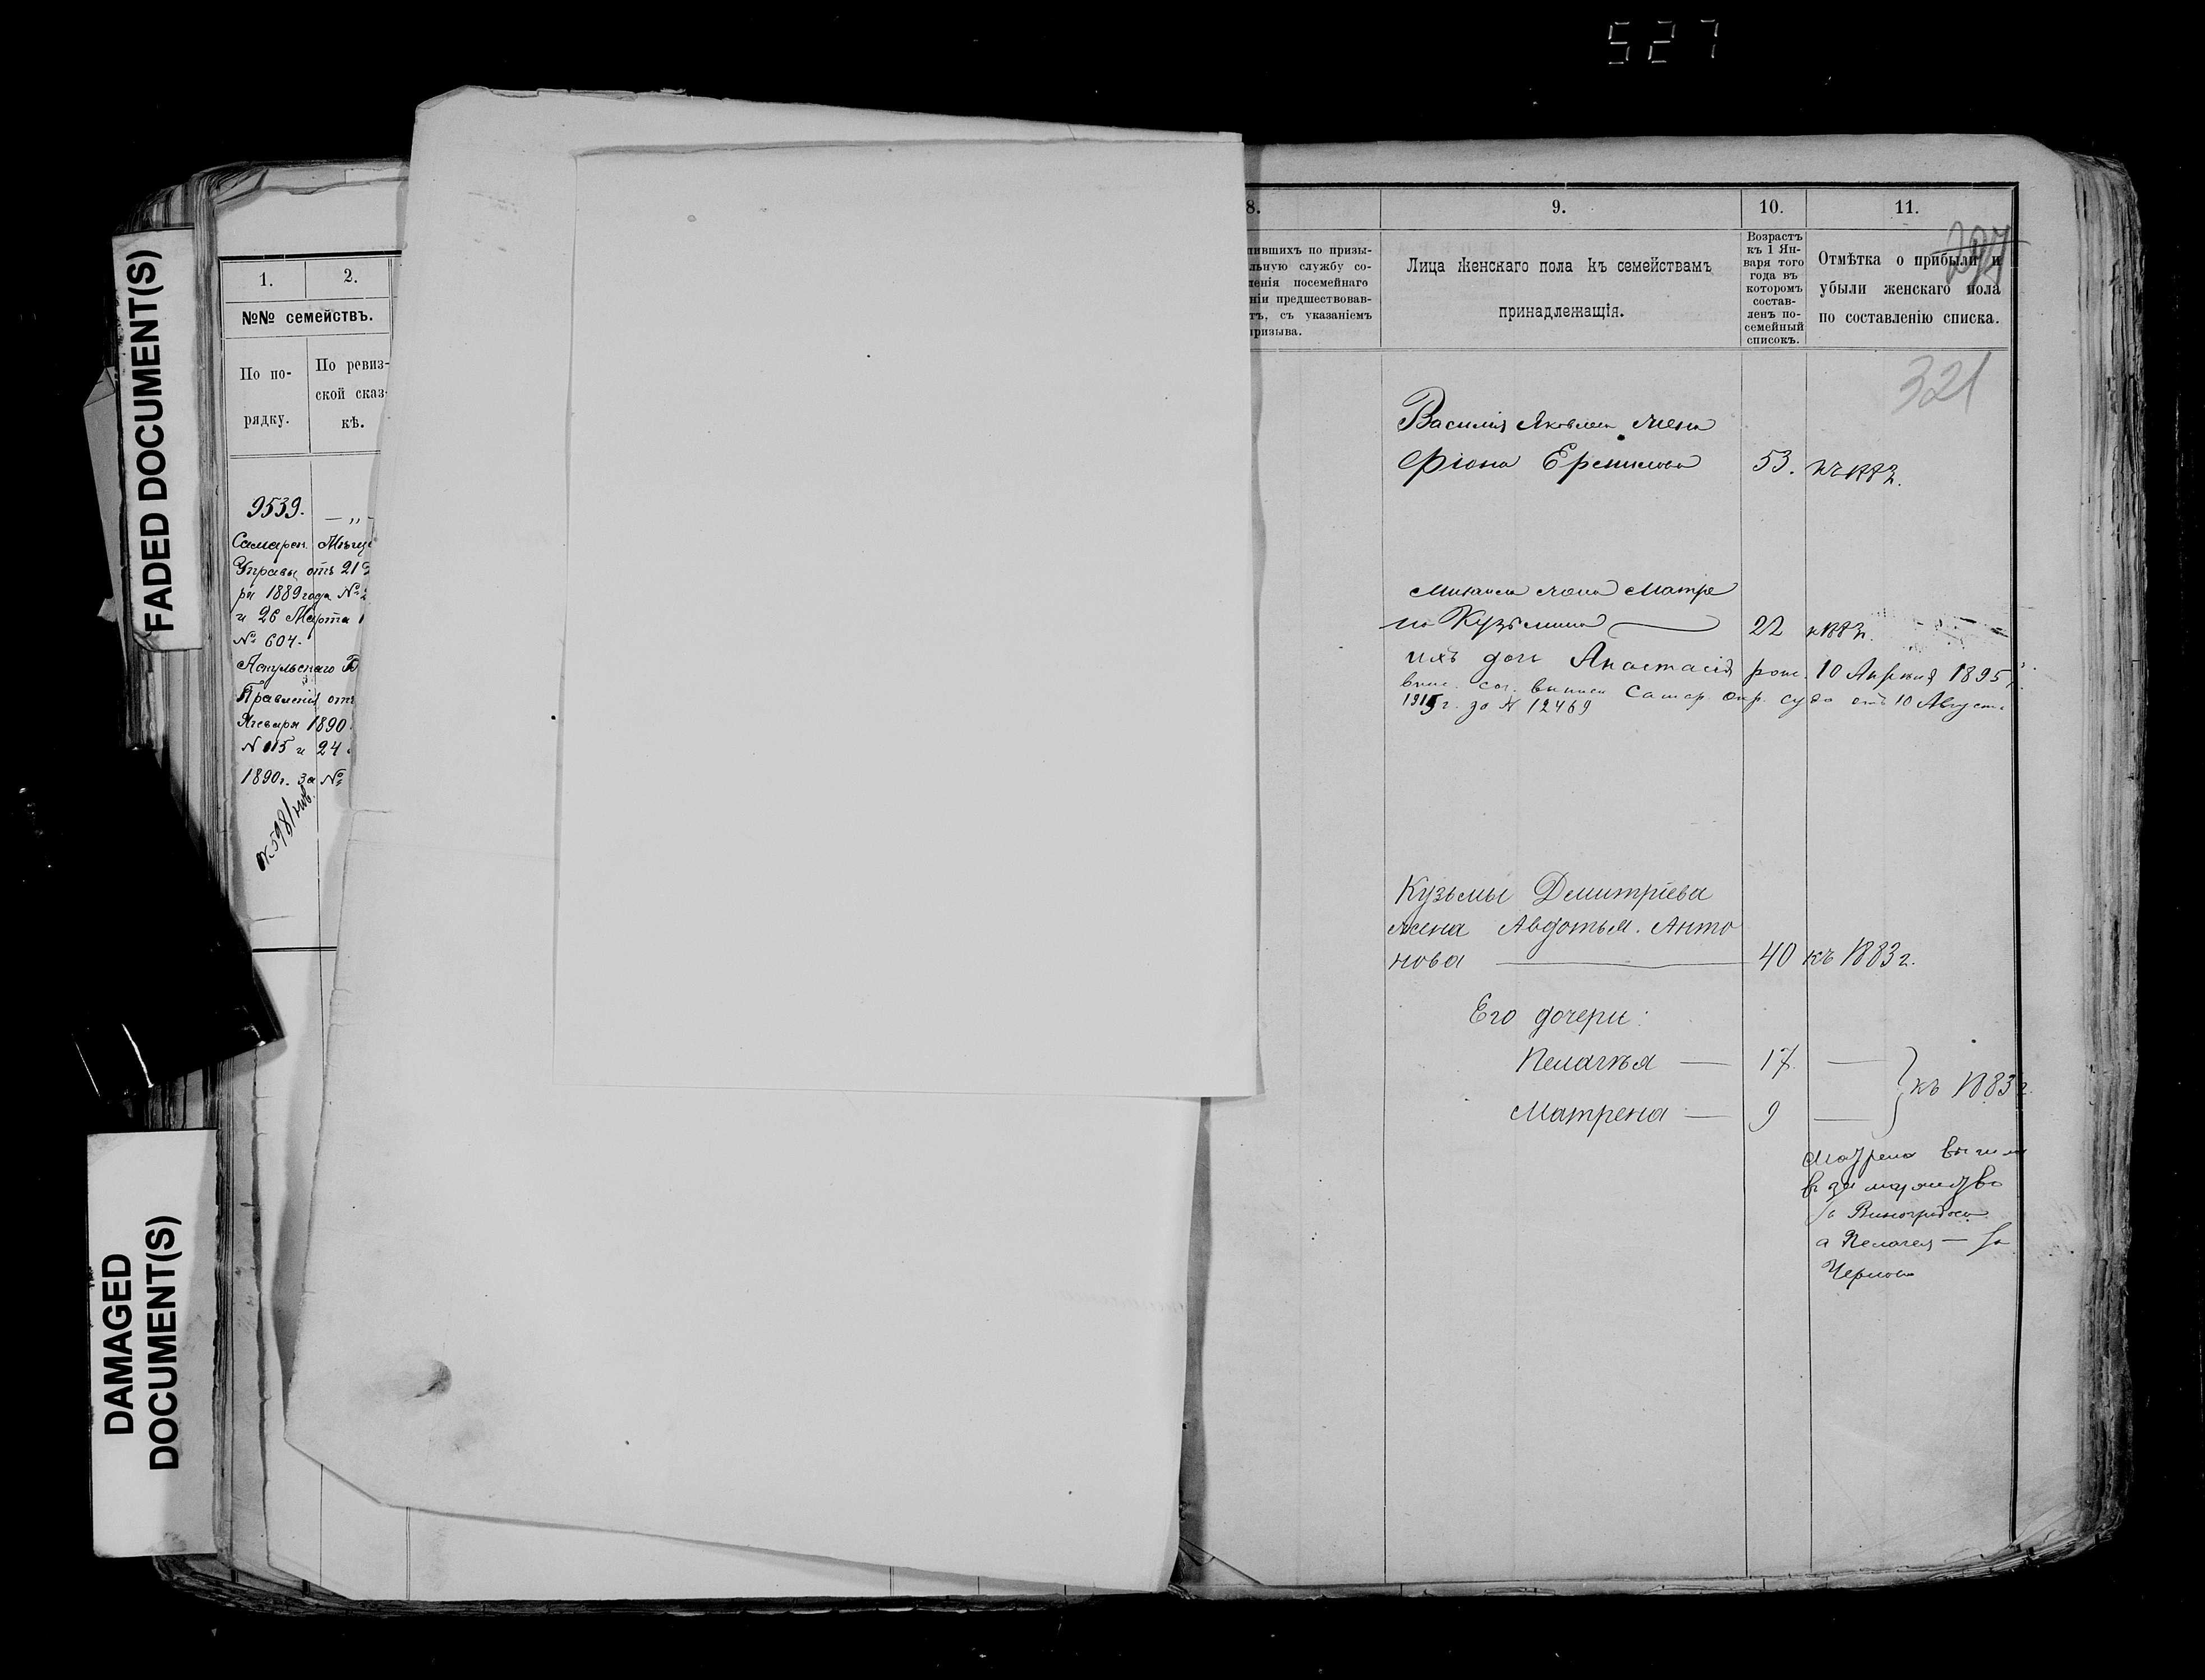 527
FADED DOCUMENT(S)
DAMAGED
DOCUMENT(S)
1. 2.
№№ семействъ.
По по-
рядку.
По ревиз-
ской сказ-
кѣ.
9539. — „ -
Самарск. Мѣще
Управы отъ 21
ря 1889 года №
и 26 Марта 1
№ 604.
Аскульскаго В
Правленія отъ
Января 1890
N 115 и 24
1890г. за №
8.
пившихъ по призы-
льную службу со-
ленія посемейнаго
ніи предшествовав-
тъ, съ указаніемъ
призыва.
9.
Лица женскаго пола къ семействамъ
принадлежащія.
10.
Возрастъ
къ 1 Ян-
варя того
года въ
которомъ
состав-
ленъ по-
семейный
списокъ.
11.
Отмѣтка о прибыли и
убыли женскаго пола
по составленію списка.
321
Василія Яковлева жена
53.
Михаила жена Матре
на Кузьмина 22
ихъ дочь Анастасія рож. 10 Апрѣля 1895 г.
впис. сог. выписи Самар. окр. суда отъ 10 Августа
1915 г. за N 12469
Кузьмы Демитріева
жена Авдотья Анто
нова — 40 къ 1883 г.
Его дочери:
Пелагѣя — 17 —
къ 1883 г.
Матрена — 9 —
Матрена вышла
въ замужество
за Виноградова
а Пелагея — за
Чернова